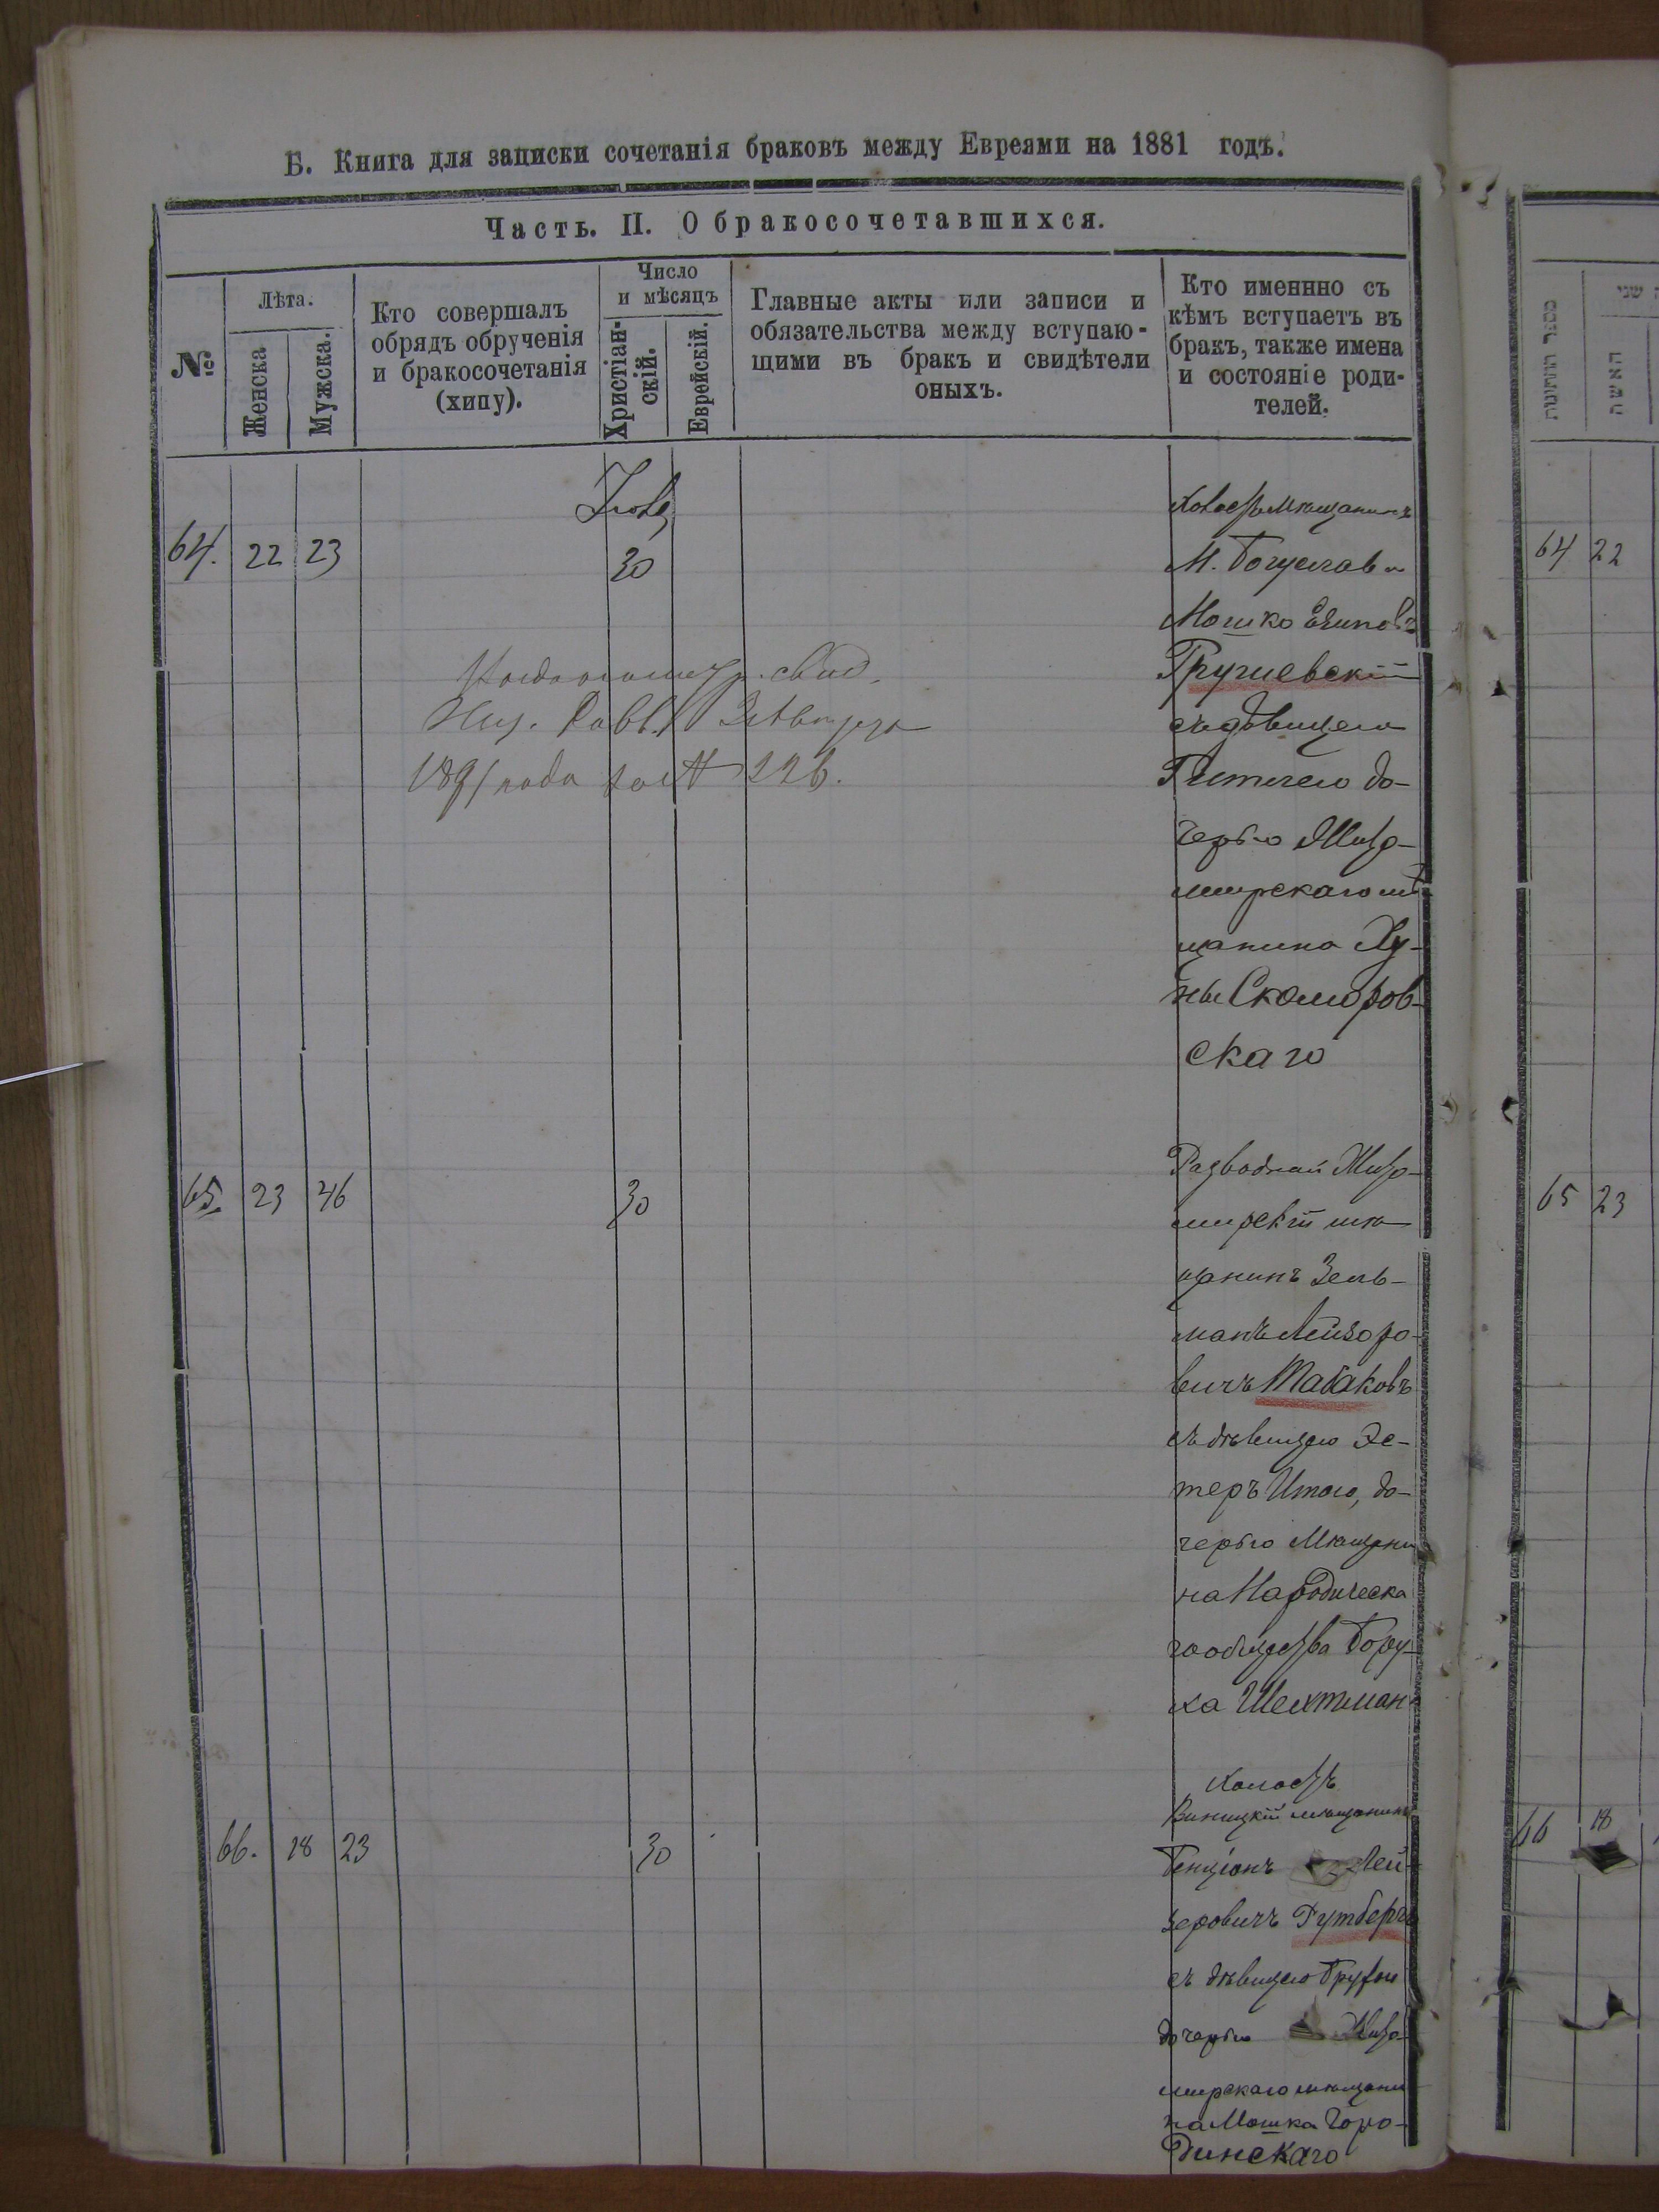 Б. Книга для записки сочетанія браковъ между Евреями на 1881 годъ.
Часть. II. О бракосочетавшихся.
№
Лѣта.
Женска
Мужска.
Кто совершалъ
обрядъ обрученія
и бракосочетанія
(хипу).
Число
и мѣсяцъ
Христіан-
скій.
Еврейскій.
Главные акты или записи и
обязательства между вступаю-
щими въ бракъ и свидѣтели
оныхъ.
Кто именнно съ
кѣмъ вступаетъ въ
бракъ, также имена
и состояніе роди-
телей.
64. 22 23
30
Холостъ мѣщанинъ
М. Богуслава
Мошко
съ дѣвицею
до-
черью Жито-
мирскаго мѣ
щанина Ху-
ны Скоморов-
скаго
свид.
1891 года за № 226.
65. 23 46
30
Разводный Жито-
мирскій мѣ
щанинъ Зель-
манъ Лейзоро-
вичъ Табаковъ
съ дѣвицею Эс-
теръ Итою, до-
черью мѣщани
на Народическа
го общества Бору-
ха Шехтман
66. 18 23
30
Холостъ
Виницкій мѣщанинъ
Бенціонъ Лей-
зеровичъ Гутбергъ
съ дѣвицею
дочерью Жито
мирскаго мѣщани
на Мошка Горо-
динскаго
שני
האשה
64 22
65 23
66 18